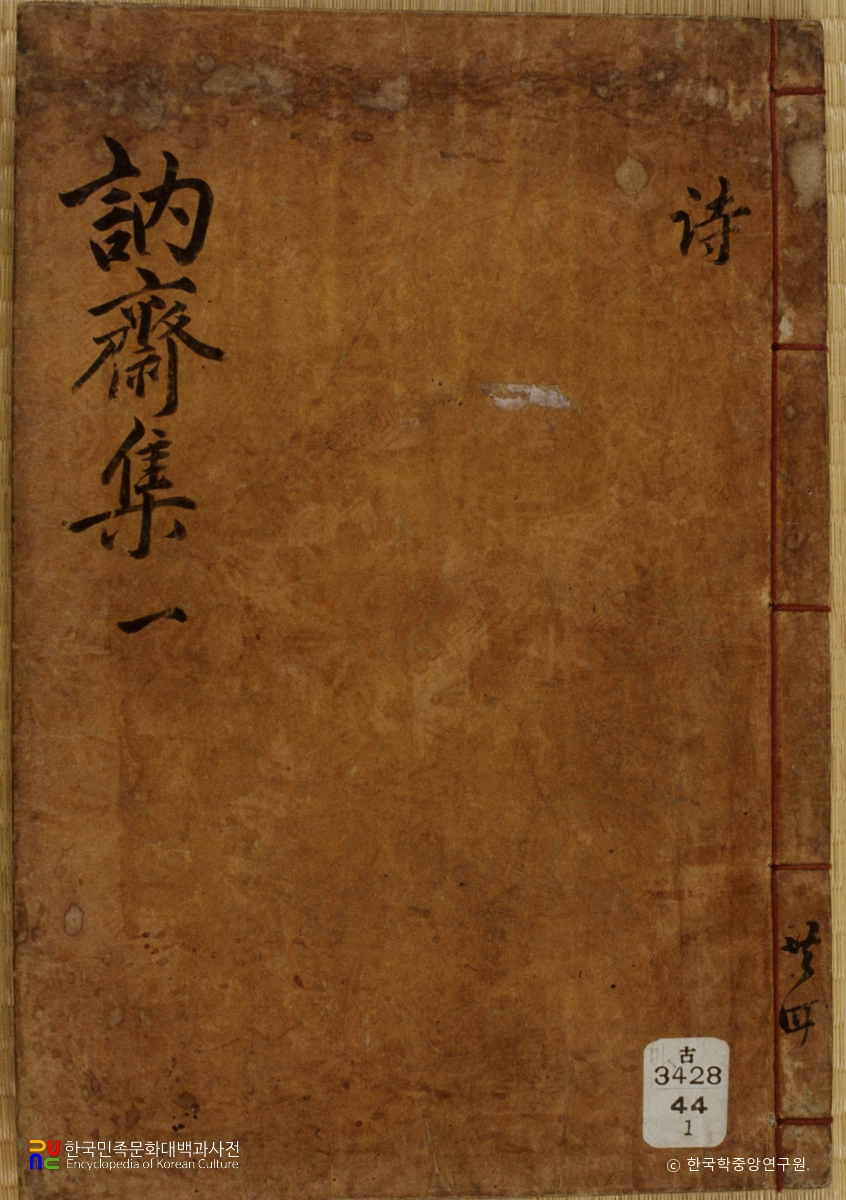 詩
訥齋集 一
共四
古
3428
44
1
한국민족문화대백과사전
Encyclopedia of Korean Culture
ⓒ 한국학중앙연구원.